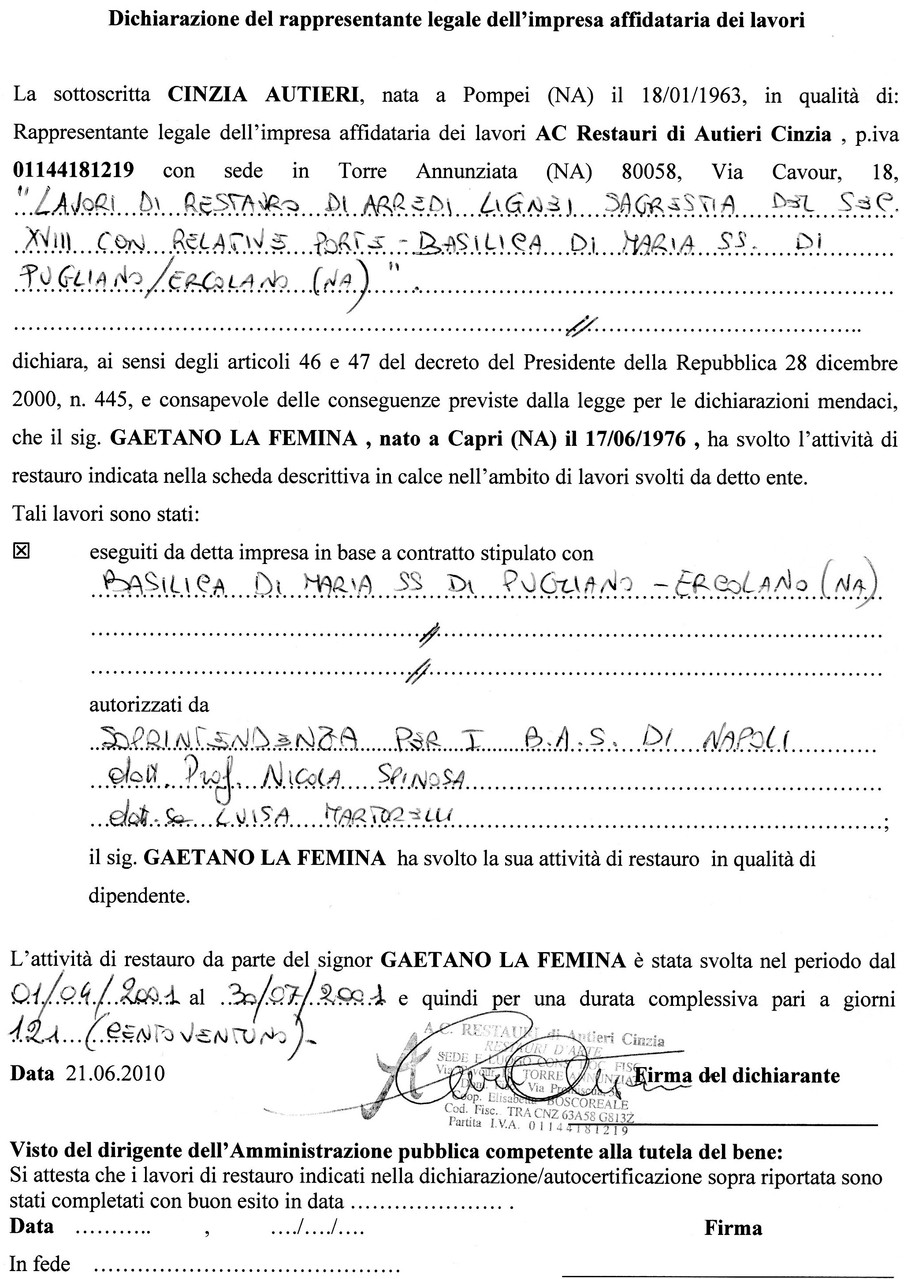 Dichiarazione del rappresentante legale dell'impresa affidataria dei lavori
La sottoscritta CINZIA AUTIERI, nata a Pompei (NA) il 18/01/1963, in qualità di:
Rappresentante legale dell'impresa affidataria dei lavori AC Restauri di Autieri Cinzia , p.iva
01144181219 con sede in Torre Annunziata (NA) 80058, Via Cavour, 18,
"LAVORI DI RESTAURO DI ARREDI LIGNEI SAGRESTIA DEL SEC.
XVIII CON RELATIVE PORTE - BASILICA DI MARIA SS. DI
PUGLIANO/ERCOLANO (NA)".
//
dichiara, ai sensi degli articoli 46 e 47 del decreto del Presidente della Repubblica 28 dicembre
2000, n. 445, e consapevole delle conseguenze previste dalla legge per le dichiarazioni mendaci,
che il sig. GAETANO LA FEMINA , nato a Capri (NA) il 17/06/1976 , ha svolto l'attività di
restauro indicata nella scheda descrittiva in calce nell'ambito di lavori svolti da detto ente.
Tali lavori sono stati:
☒ eseguiti da detta impresa in base a contratto stipulato con
BASILICA DI MARIA SS DI PUGLIANO - ERCOLANO (NA)
//
//
autorizzati da
SOPRINTENDENZA PER I B.A.S. DI NAPOLI
dott. Prof. NICOLA SPINOSA
dott.sa LUISA MARTORELLI ;
il sig. GAETANO LA FEMINA ha svolto la sua attività di restauro in qualità di
dipendente.
L'attività di restauro da parte del signor GAETANO LA FEMINA è stata svolta nel periodo dal
01/04/2001 al 30/07/2001 e quindi per una durata complessiva pari a giorni
121 (CENTOVENTUNO)-
A.C. RESTAURI di Autieri Cinzia
RESTAURI D'ARTE
SEDE E LUOGO FISC.
TORRE ANNUNZIATA
Data 21.06.2010 Firma del dichiarante
Via
Coop. BOSCOREALE
Cod. Fisc. TRA CNZ 63A58 G813Z
Partita I.V.A. 01144181219
Visto del dirigente dell'Amministrazione pubblica competente alla tutela del bene:
Si attesta che i lavori di restauro indicati nella dichiarazione/autocertificazione sopra riportata sono
stati completati con buon esito in data ..................... .
Data ........... , ..../..../.... Firma
In fede ..........................................